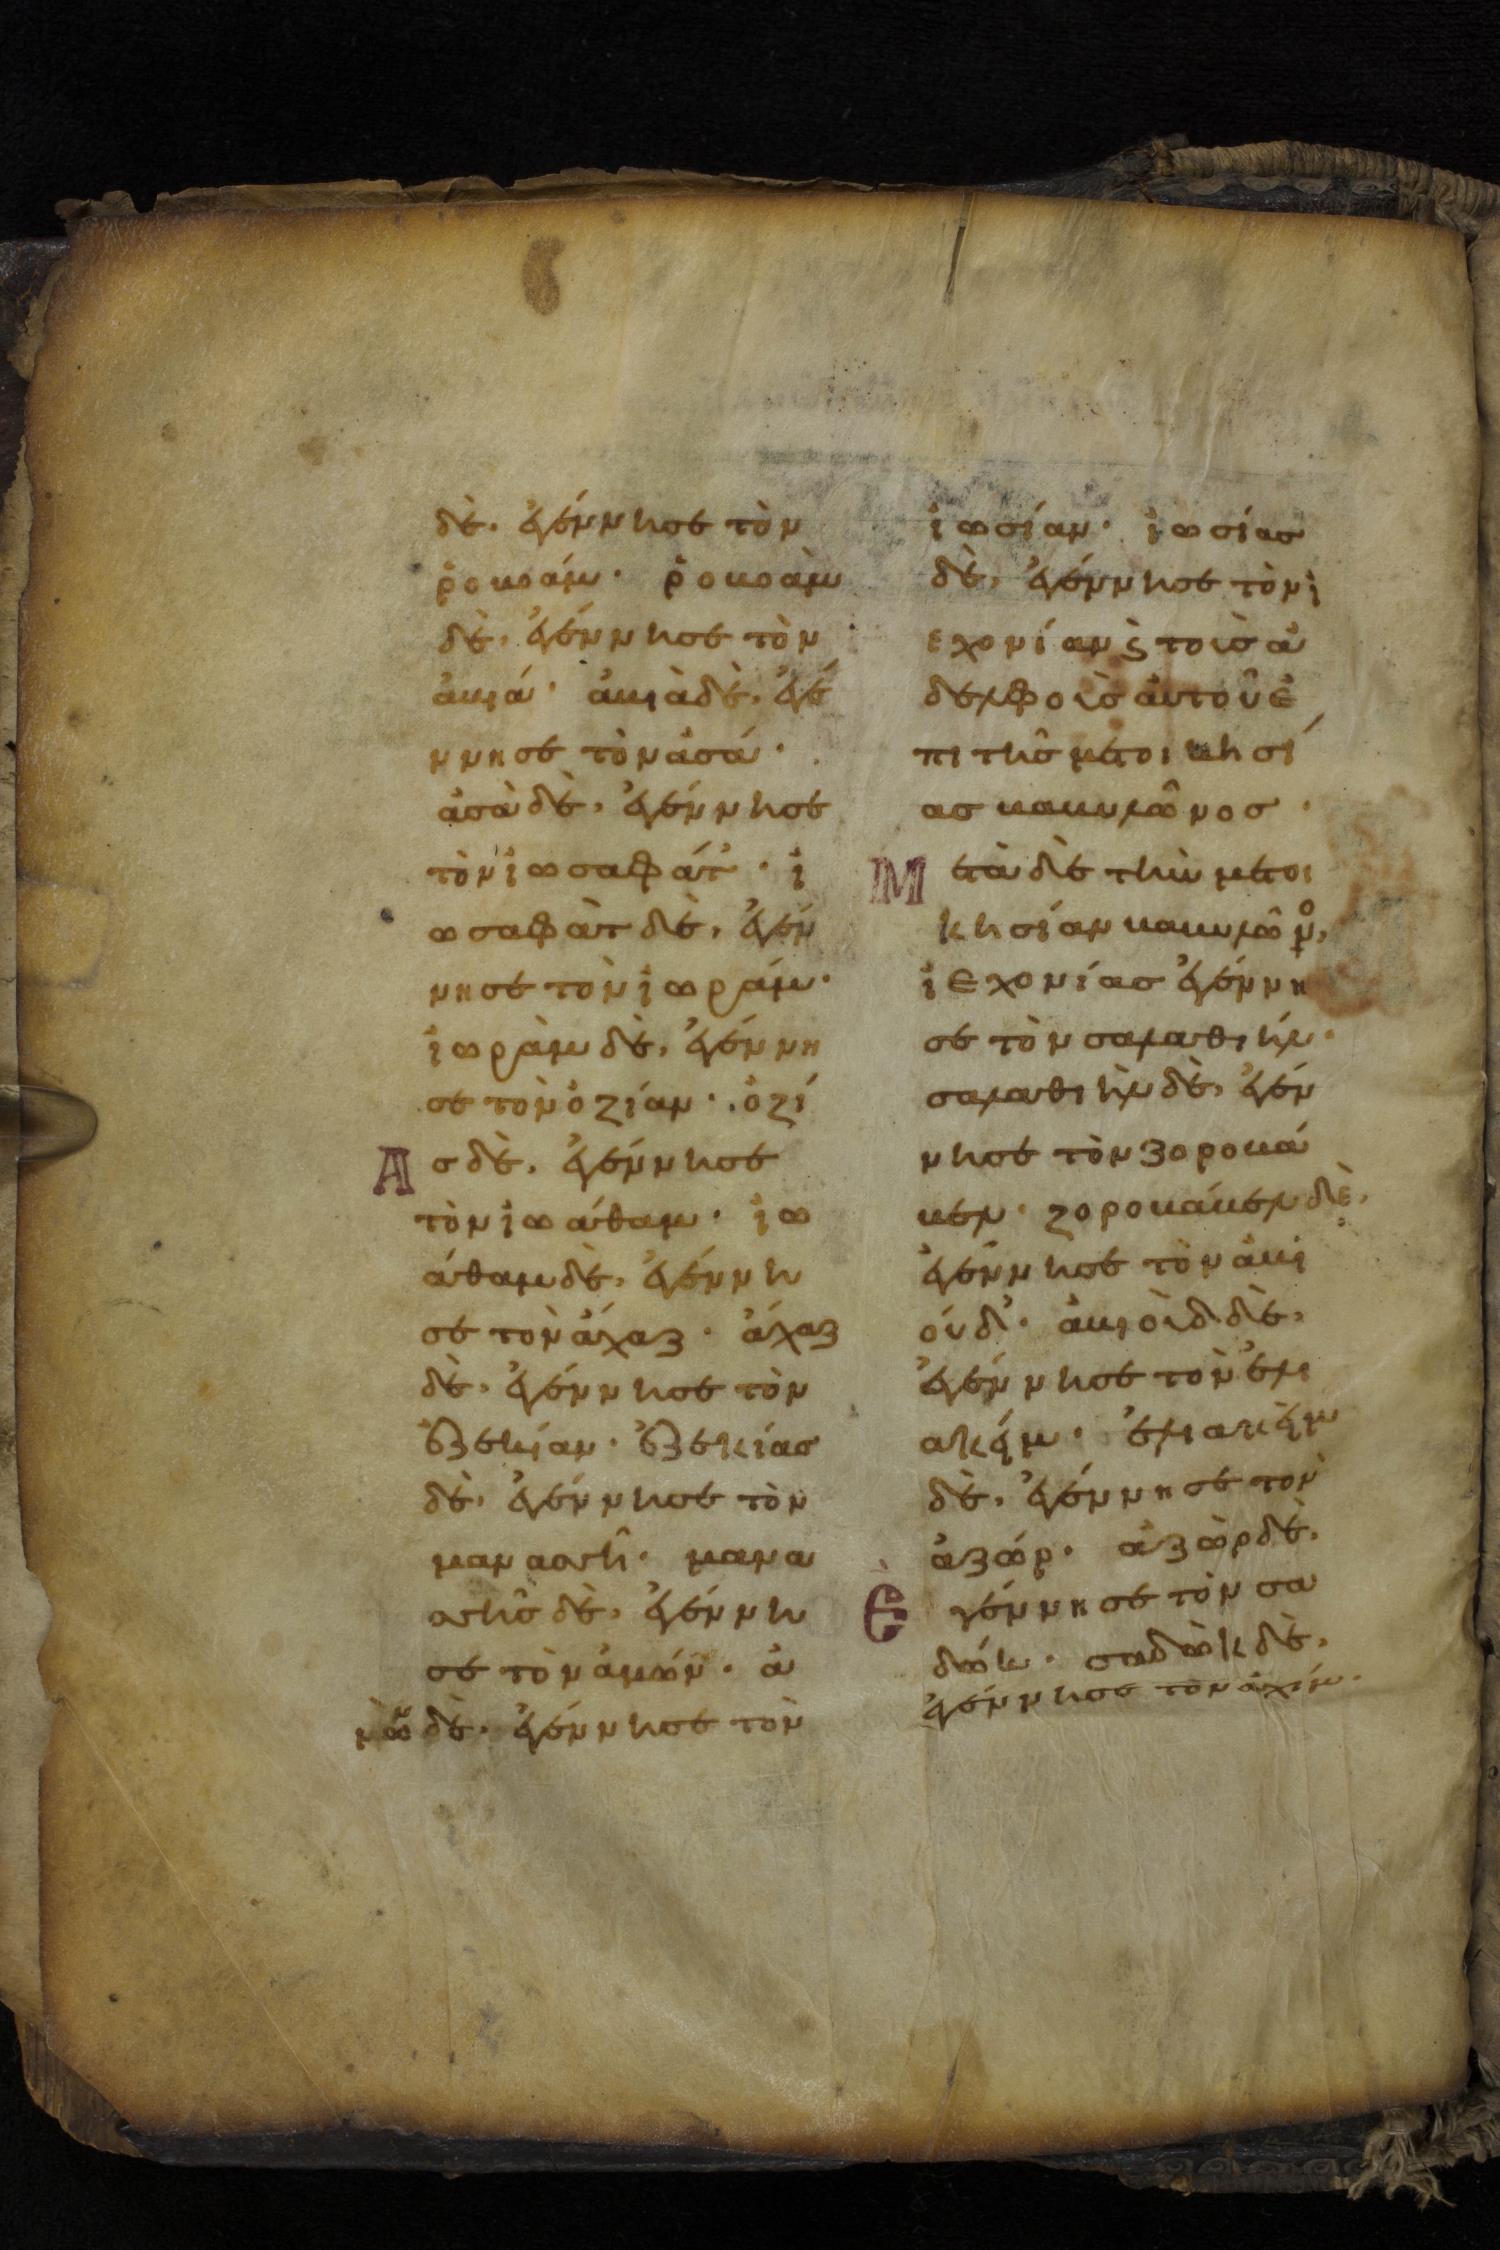 δὲ, ἐγέννησε τὸν
ῥοβοάμ· ῥοβοὰμ
δὲ, ἐγέννησε τὸν
ἀβιά· ἀβιὰ δὲ, ἐγέ
ννησε τὸν ἀσά·
ἀσὰ δὲ, ἐγέννησε
τὸν ἰωσαφάτ· ἰ
ωσαφὰτ δὲ, ἐγέν
νησε τὸν ἰωράμ·
ἰωρὰμ δὲ, ἐγέννη
σε τὸν ὀζίαν· ὀζί
Ας δὲ, ἐγέννησε
τὸν ἰωάθαμ· ἰω
άθαμ δὲ, ἐγέννη
σε τὸν ἄχαζ· ἄχαζ
δὲ, ἐγέννησε τὸν
ἐζεκίαν· ἐζεκίας
δὲ, ἐγέννησε τὸν
μανασσῆ· μανα
σσῆς δὲ, ἐγέννη
σε τὸν ἀμών· ἀ
μὼν δὲ, ἐγέννησε τὸν
ἰωσίαν· ἰωσίας
δὲ, ἐγέννησε τὸν ἰ
εχονίαν ϗ τοὺς ἀ
δελφοὺς αὐτοῦ ἐ
πι τῆς μετοικησί
ας βαβυλῶνος·
Μετὰ δὲ τὴν μετοι
κησίαν βαβυλῶνο,
ἰεχονίας ἐγέννη
σε τὸν σαλαθιήλ·
σαλαθιὴλ δὲ, ἐγέν
νησε τὸν ζοροβά
βελ· ζοροβάβελ δὲ,
ἐγέννησε τὸν ἀβι
ούδ· ἀβιοὺδ δὲ,
ἐγέννησε τὸν ἐλι
ακείμ· ἐλιακεὶμ
δὲ, ἐγέννησε τὸν
ἀζώρ· ἀζὼρ δὲ,
Ἐγέννησε τὸν σα
δώκ· σαδὼκ δὲ,
ἐγέννησε τὸν ἀχείμ·